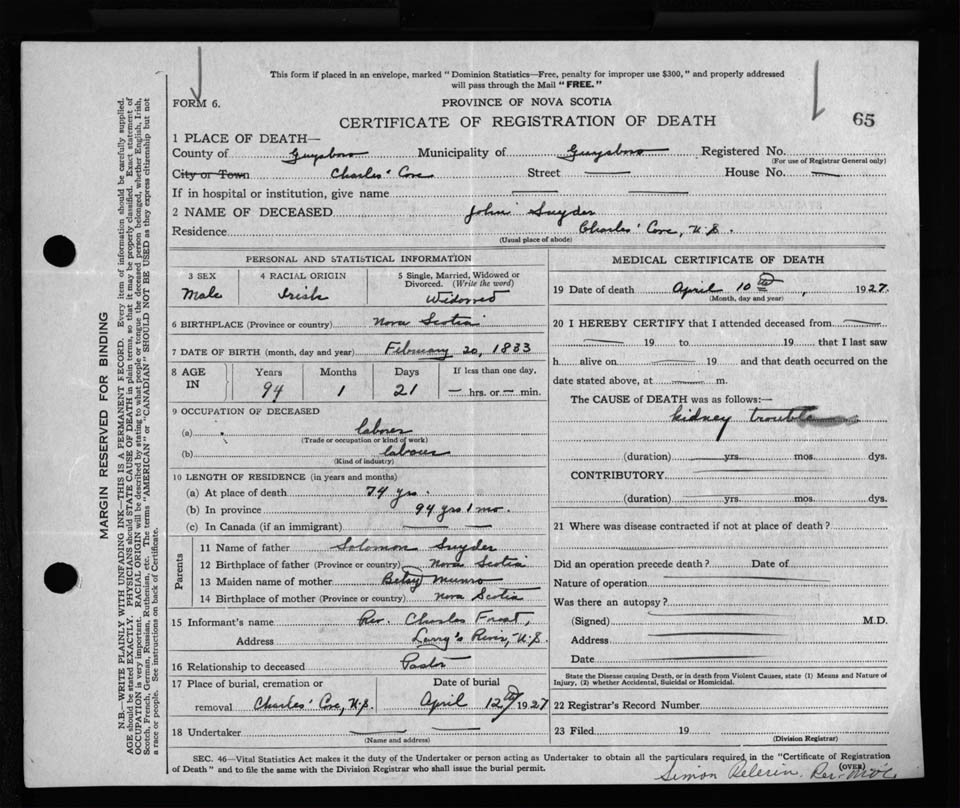 This form if placed in an envelope, marked "Dominion Statistics—Free, penalty for improper use $300," and properly addressed
will pass through the Mail "FREE."
FORM 6.
PROVINCE OF NOVA SCOTIA
CERTIFICATE OF REGISTRATION OF DEATH
65
1 PLACE OF DEATH—
County of Guysboro Municipality of Guysboro Registered No.
(For use of Registrar General only)
City or Town Charles' Cove Street — House No. —
If in hospital or institution, give name — —
2 NAME OF DECEASED John Snyder
Residence Charles' Cove, N.S.
(Usual place of abode)
PERSONAL AND STATISTICAL INFORMATION
3 SEX 4 RACIAL ORIGIN 5 Single, Married, Widowed or
Divorced. (Write the word)
Male Irish Widowed
6 BIRTHPLACE (Province or country) Nova Scotia
7 DATE OF BIRTH (month, day and year) February 20, 1833
8 AGE IN Years Months Days If less than one day,
94 1 21 — hrs. or — min.
9 OCCUPATION OF DECEASED
(a) laborer
(Trade or occupation or kind of work)
(b) labour
(Kind of industry)
10 LENGTH OF RESIDENCE (in years and months)
(a) At place of death 74 yrs.
(b) In province 94 yrs 1 mo.
(c) In Canada (if an immigrant) — —
Parents
11 Name of father Solomon Snyder
12 Birthplace of father (Province or country) Nova Scotia
13 Maiden name of mother Betsy Munro
14 Birthplace of mother (Province or country) Nova Scotia
15 Informant's name Rev. Charles Frost,
Address Larry's River, N.S.
16 Relationship to deceased Pastor
17 Place of burial, cremation or Date of burial
removal Charles' Cove, N.S. April 12th 1927
18 Undertaker — —
(Name and address)
MEDICAL CERTIFICATE OF DEATH
19 Date of death April 10th, 1927.
(Month, day and year)
20 I HEREBY CERTIFY that I attended deceased from —
— 19 to 19 that I last saw
h alive on — 19 and that death occurred on the
date stated above, at — m.
The CAUSE of DEATH was as follows:—
kidney trouble
(duration) yrs. mos. dys.
CONTRIBUTORY
(duration) yrs. mos. dys.
21 Where was disease contracted if not at place of death?
Did an operation precede death? Date of
Nature of operation
Was there an autopsy?
(Signed) M.D.
Address
Date
State the Disease causing Death, or in death from Violent Causes, state (1) Means and Nature of
Injury, (2) whether Accidental, Suicidal or Homicidal.
22 Registrar's Record Number
23 Filed 19
(Division Registrar)
SEC. 46—Vital Statistics Act makes it the duty of the Undertaker or person acting as Undertaker to obtain all the particulars required in the "Certificate of Registration
of Death" and to file the same with the Division Registrar who shall issue the burial permit.
(OVER)
Simon Pelerin.
MARGIN RESERVED FOR BINDING
N.B.—WRITE PLAINLY WITH UNFADING INK—THIS IS A PERMANENT RECORD. Every item of information should be carefully supplied.
AGE should be stated EXACTLY. PHYSICIANS should STATE CAUSE OF DEATH in plain terms, so that it may be properly classified. Exact statement of
OCCUPATION is very important. RACIAL ORIGIN will be described by stating to what people or tongue the deceased person belonged, whether English, Irish,
Scotch, French, German, Russian, Ruthenian, etc. The terms "AMERICAN" or "CANADIAN" SHOULD NOT BE USED as they express citizenship but not
a race or people. See instructions on back of Certificate.